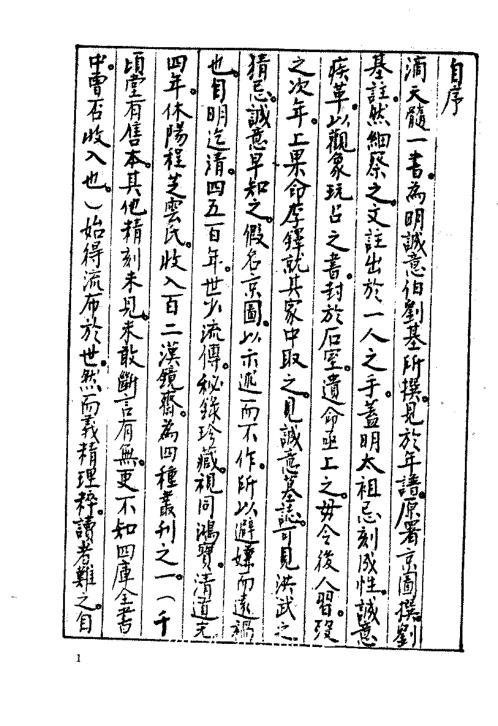 自序
滴天髓一書。為明誠意伯劉基所撰。見於年譜。原署京圖撰。劉
基註。然細察之。文註出於一人之手。蓋明太祖忌刻成性。誠意
疾革。以觀象玩占之書。封於石室。遺命亟上之。毋令後人習。歿
之次年。上果命李鐸就其家中取之。見誠意墓誌。可見洪武之
猜忌。誠意早知之。假名京圖。以示述而不作。所以避嫌而遠禍
也。自明迄清。四五百年。世少流傳。秘錄珍藏。視同鴻寶。清道光
四年。休陽程芝雲氏。收入百二漢鏡齋。為四種叢刊之一。(千
頃堂有售本。其他精刻未見。未敢斷言有無。更不知四庫全書
中曾否收入也。)始得流布於世。然而義精理粹。讀者難之。自
1